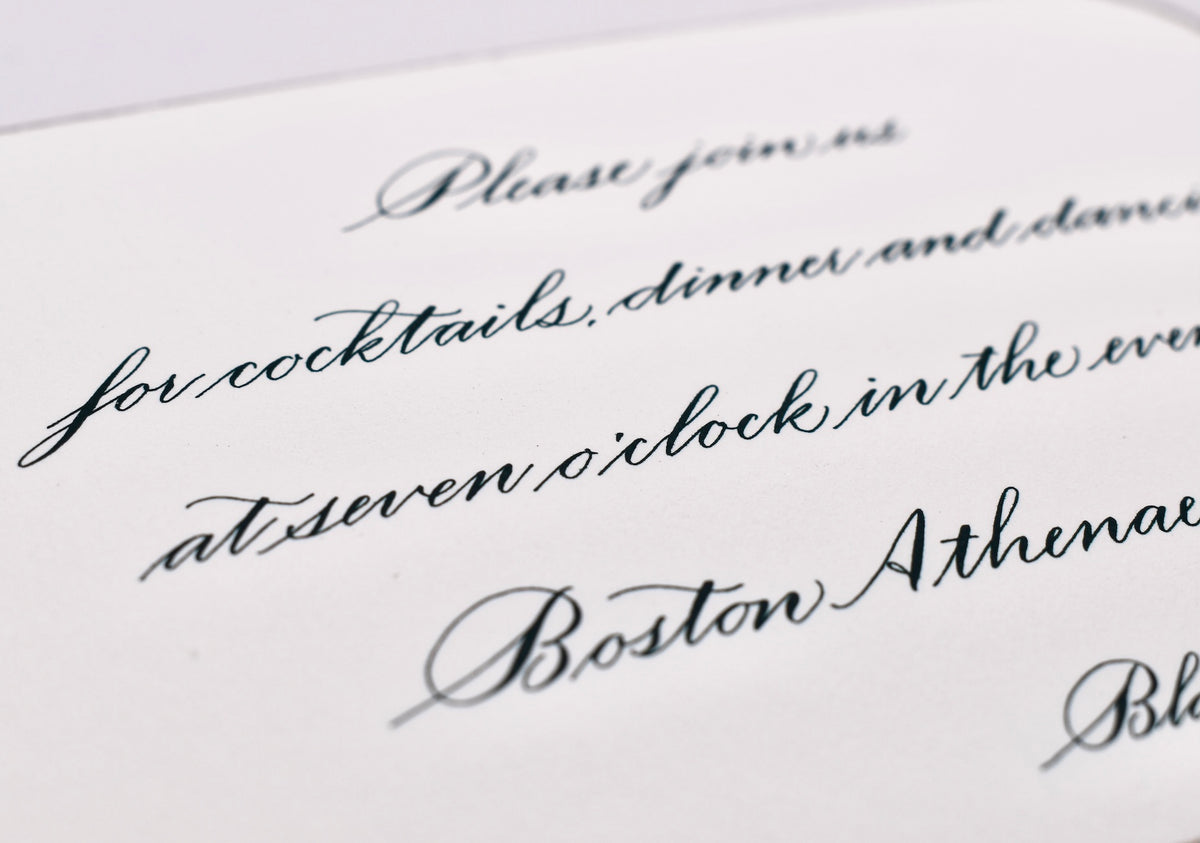 Please join us
for cocktails, dinner and danci
at seven o'clock in the even
Boston Athenae
Bla